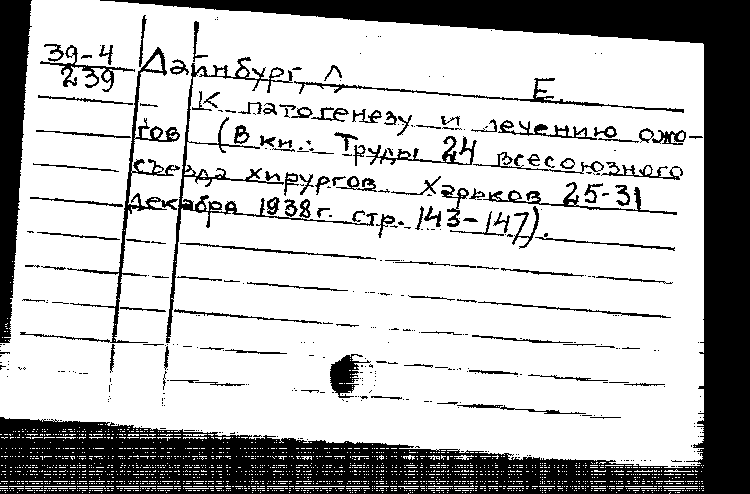 39-4
239
Дайнбург, Л. Е.
К патогенезу и лечению ожо-
гов (В кн.: Труды 24 всесоюзного
съезда хирургов. Харьков 25-31
декабря 1938 г. стр. 143-147).